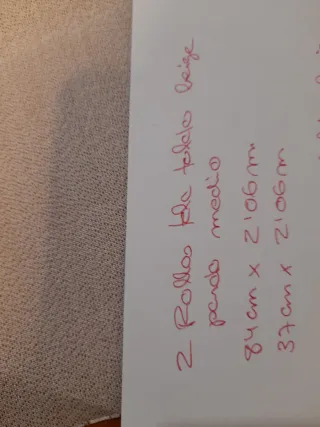 2 Rollos tela toldo beige
pardo medio
84cm x 2'06m
37cm x 2'06m